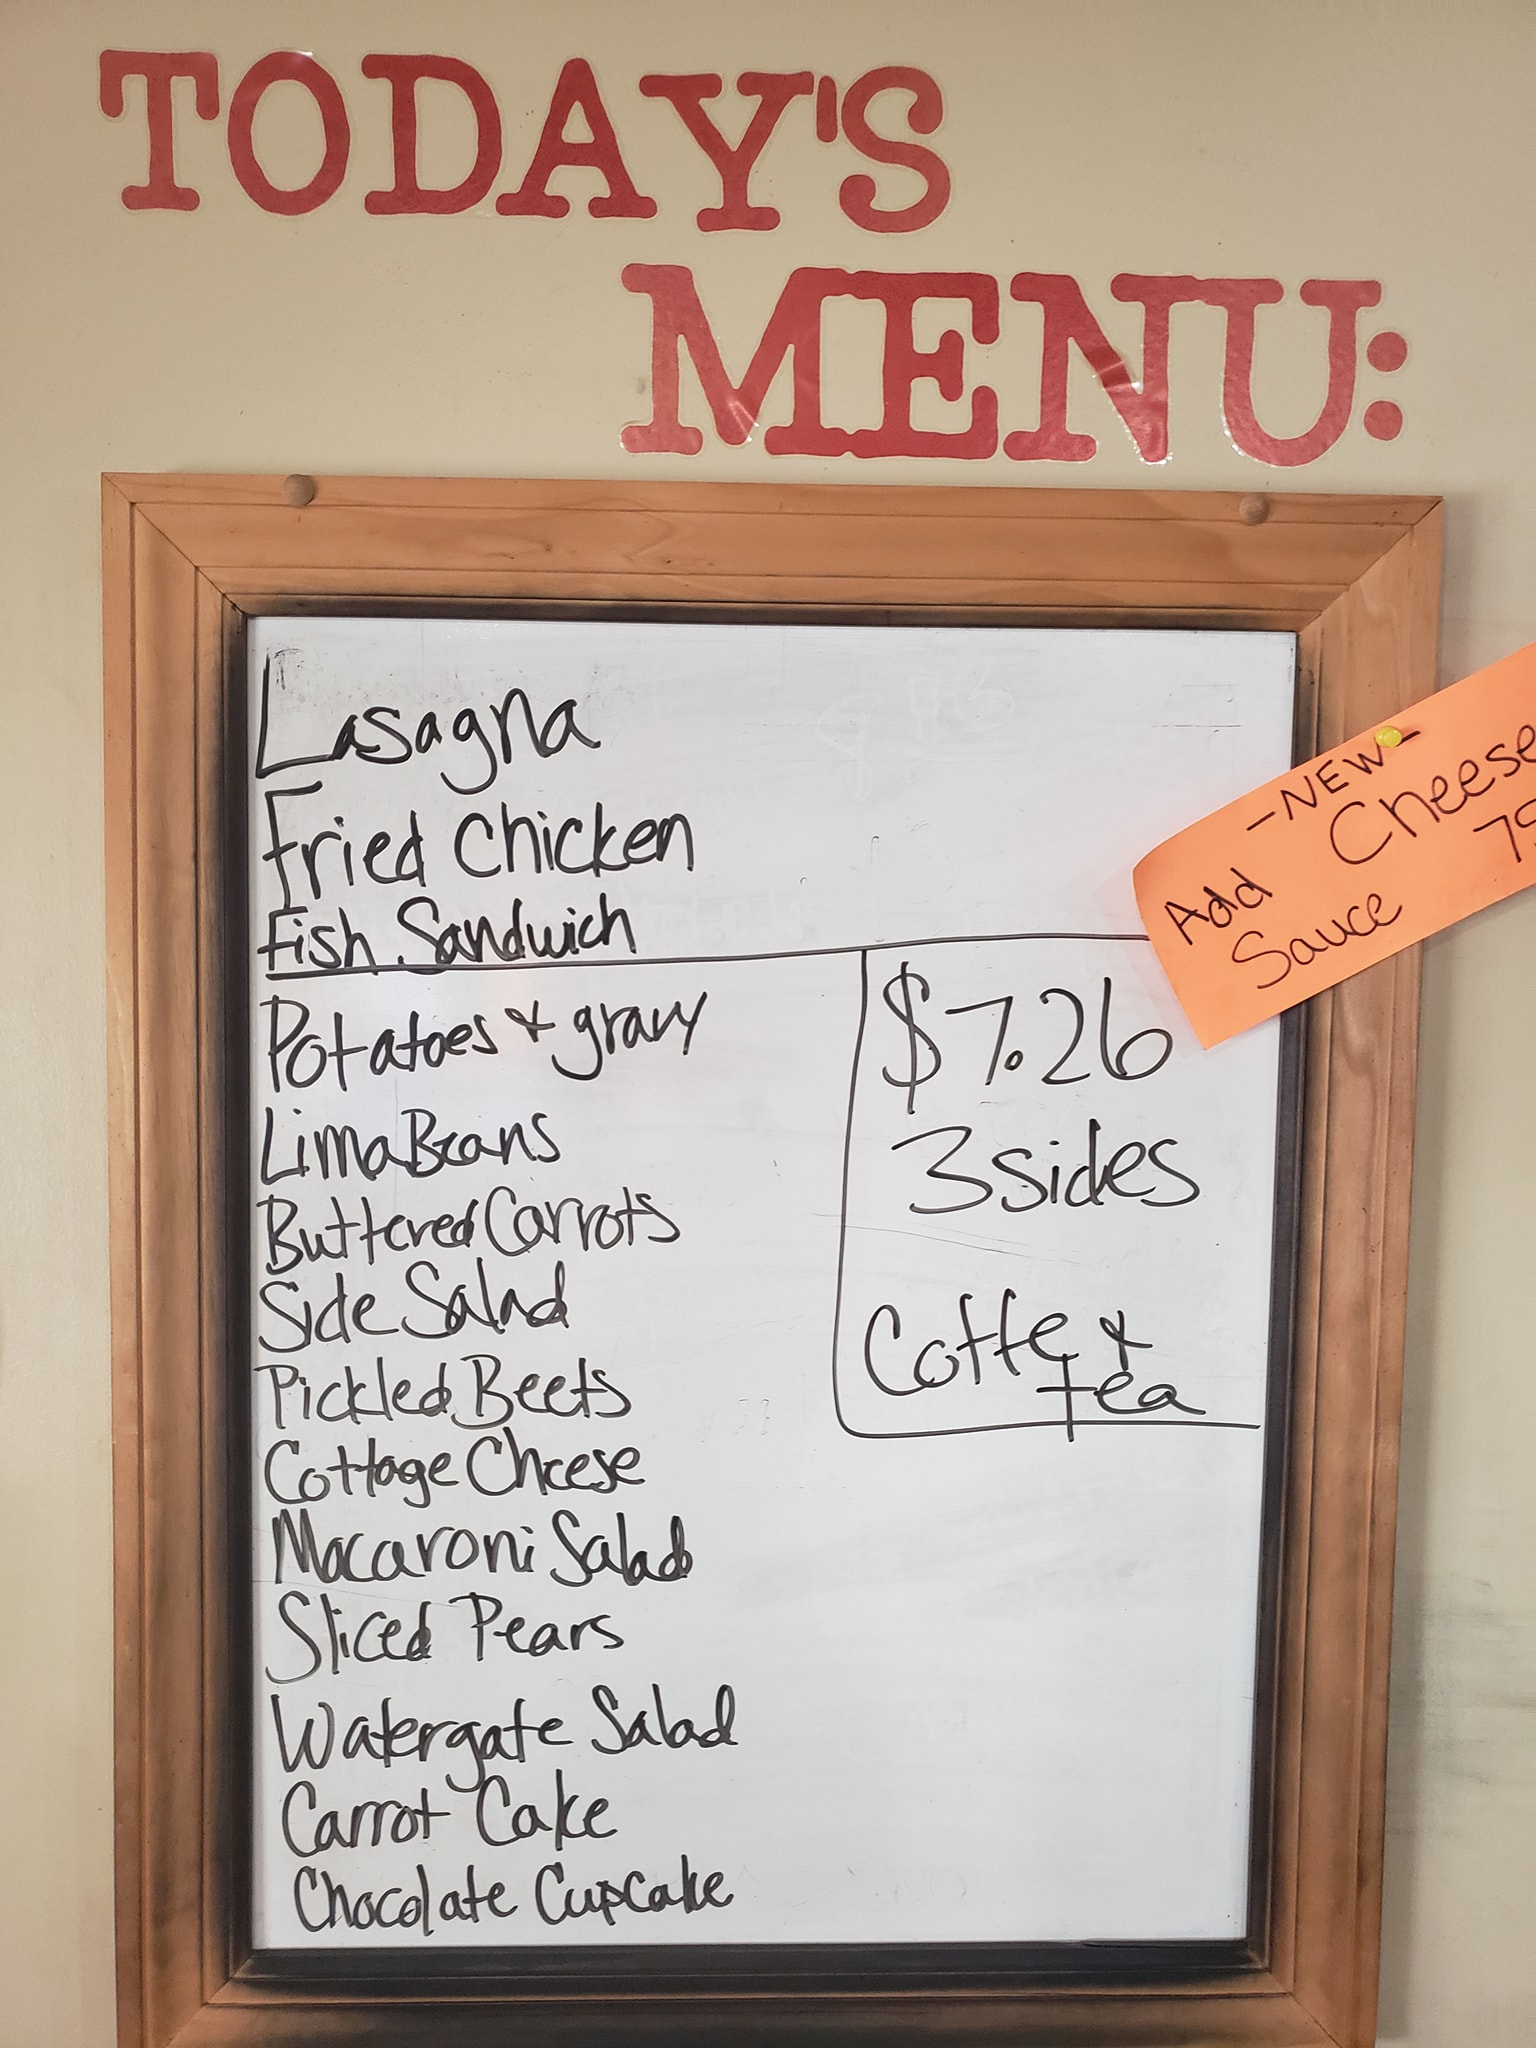 TODAY'S
MENU:
Lasagna
Fried Chicken
Fish Sandwich
Potatoes & gravy
Lima Beans
Buttered Carrots
Side Salad
Pickled Beets
Cottage Cheese
Macaroni Salad
Sliced Pears
Watergate Salad
Carrot Cake
Chocolate Cupcake
$7.26
3 sides
Coffe &
tea
-NEW-
Add Cheese
Sauce